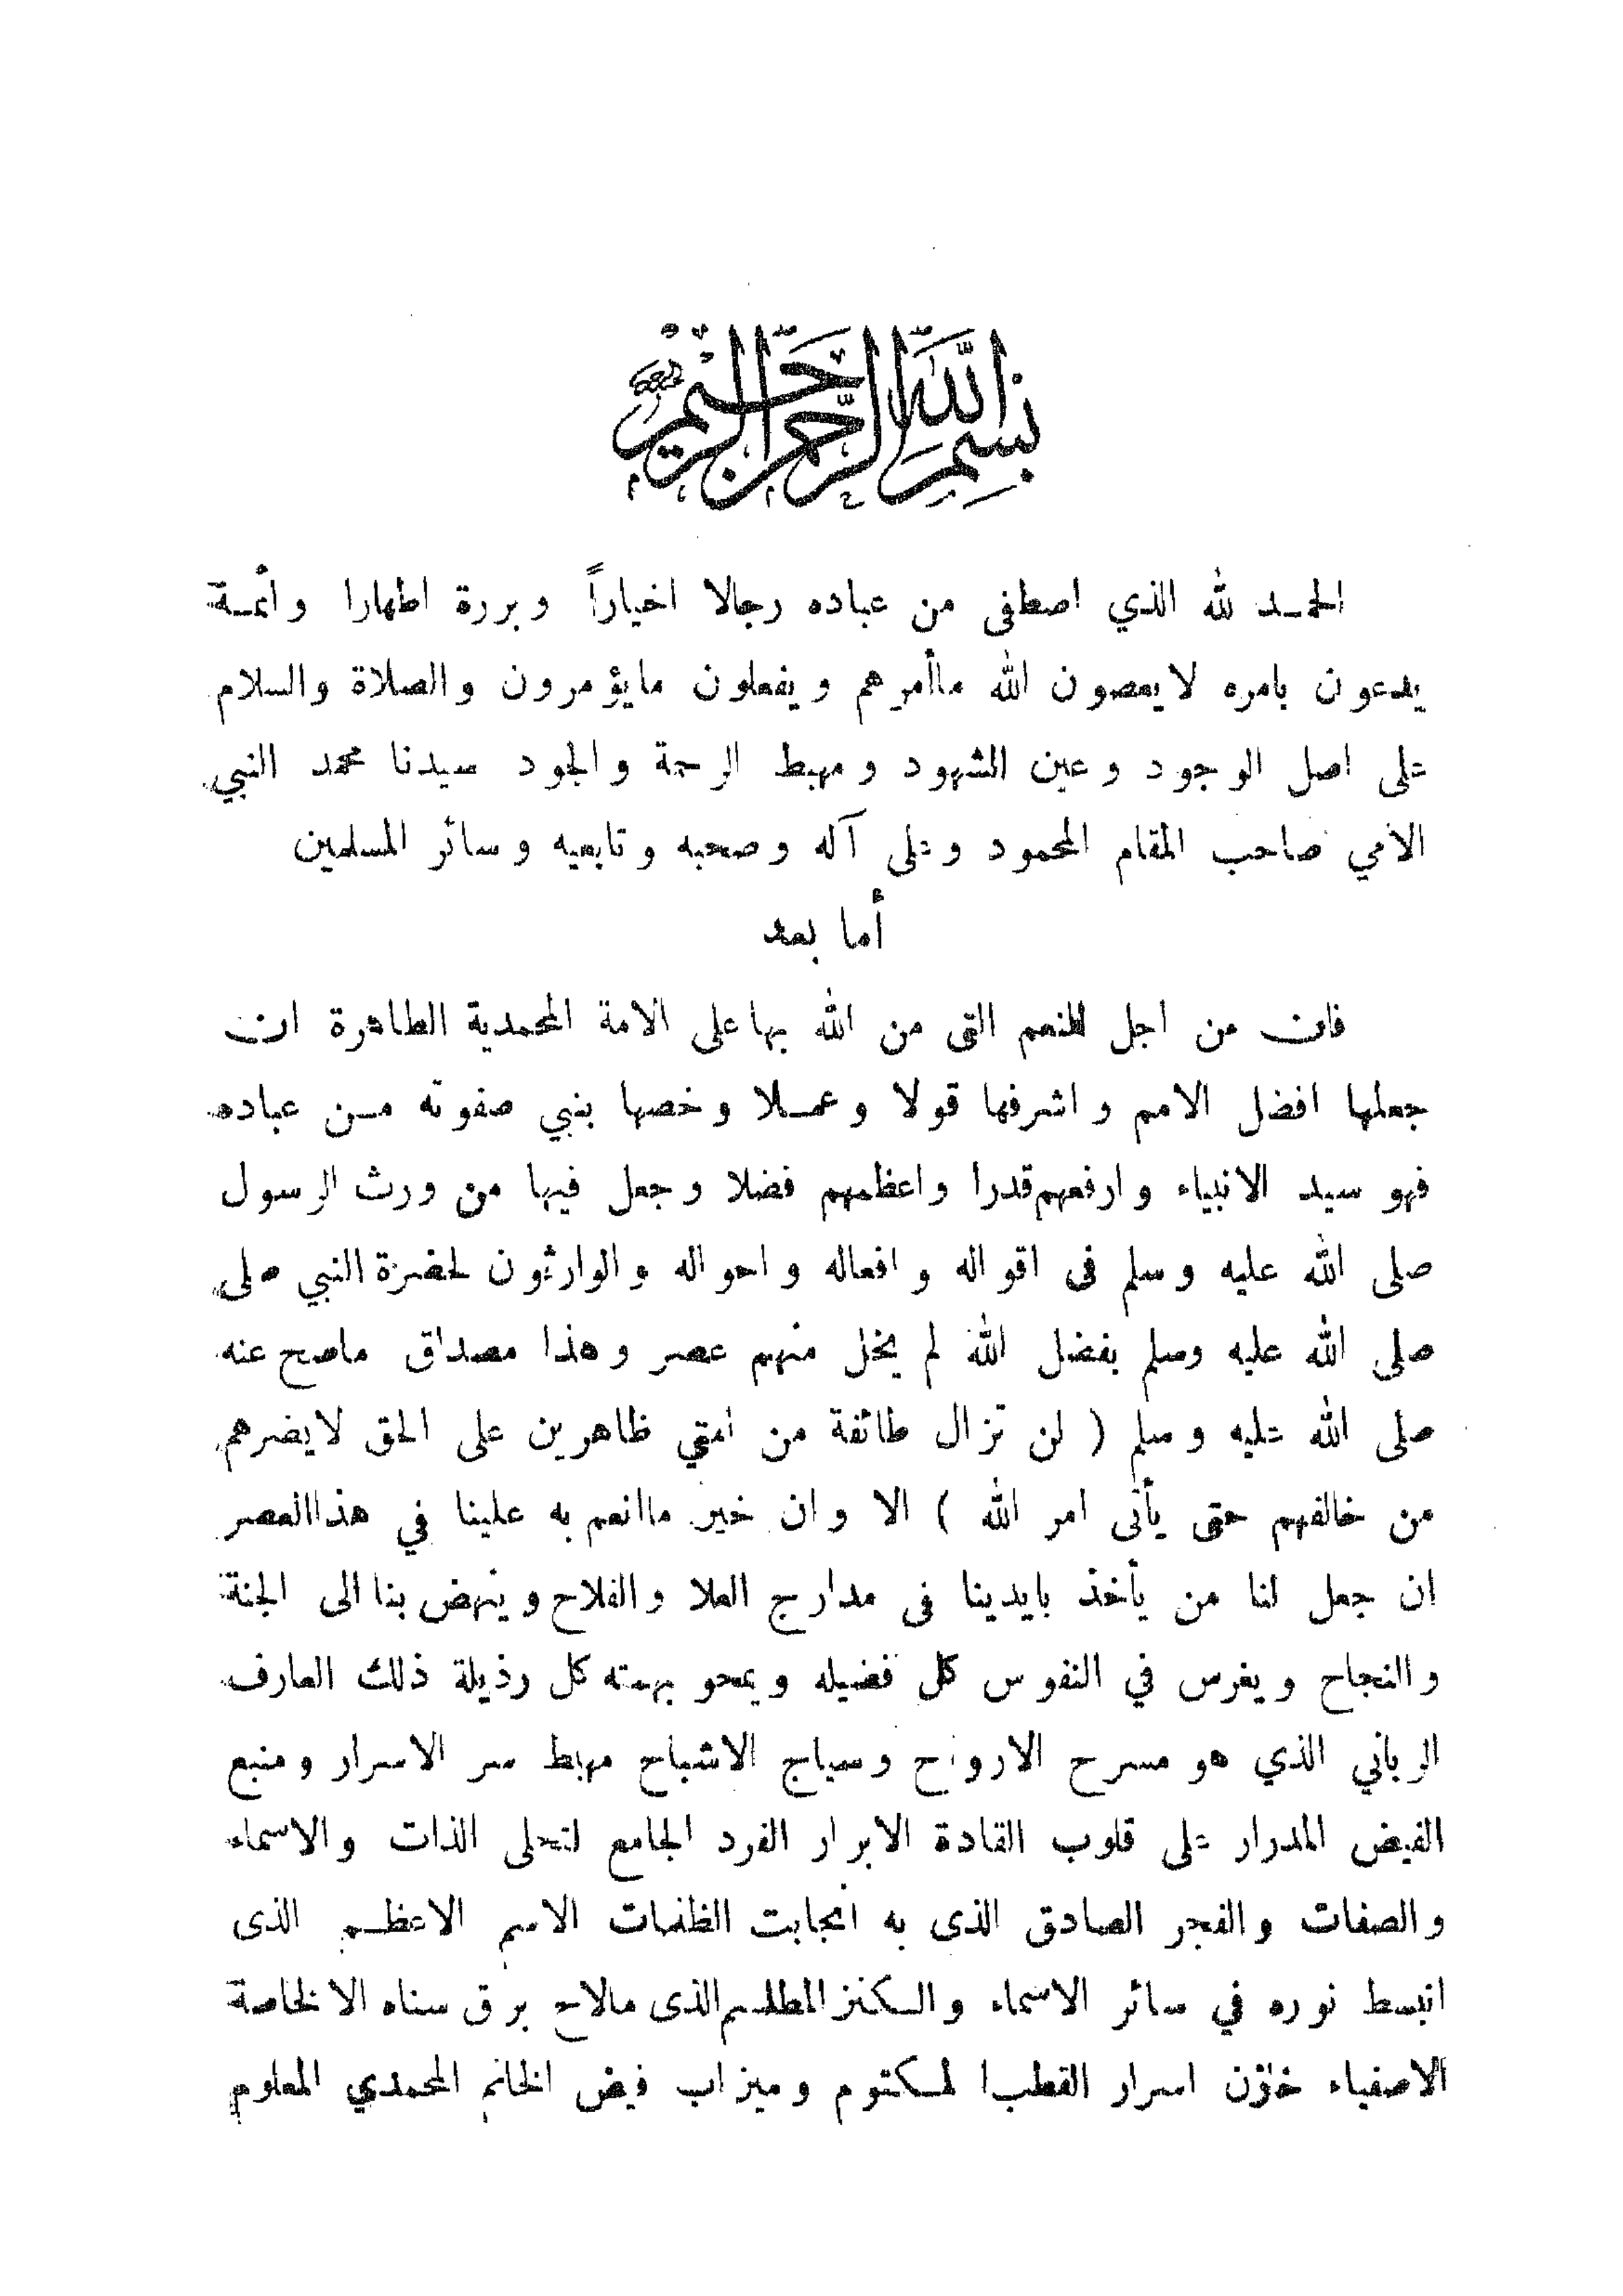 بسم الله الرحمن الرحيم
الحمد لله الذي اصطفى من عباده رجالا اخياراً وبررة اطهارا وأئمة
يدعون بامره لايعصون الله ماأمرهم ويفعلون مايؤمرون والصلاة والسلام
على اصل الوجود وعين الشهود ومهبط الرحمة والجود سيدنا محمد النبي
الامي صاحب المقام المحمود وعلى آله وصحبه وتابعيه وسائر المسلمين
أما بعد
فان من اجل النعم التى من الله بها على الامة المحمدية الطاهرة ان
جعلها افضل الامم واشرفها قولا وعملا وخصها بنبي صفوته من عباده
فهو سيد الانبياء وارفعهم قدرا واعظمهم فضلا وجعل فيها من ورث الرسول
صلى الله عليه وسلم فى اقواله وافعاله واحواله والوارثون لحضرة النبي صلى
صلى الله عليه وسلم بفضل الله لم يخل منهم عصر وهذا مصداق ماصح عنه
صلى الله عليه وسلم ( لن تزال طائفة من امتي ظاهرين على الحق لايضرهم
من خالفهم حتى يأتى امر الله ) الا وان خير ماانعم به علينا في هذاالعصر
ان جعل لنا من يأخذ بايدينا فى مدارج العلا والفلاح وينهض بنا الى الجنة
والنجاح ويغرس في النفوس كل فضيله ويمحو بهمته كل رذيلة ذلك العارف
الرباني الذي هو مسرح الارواح وسياج الاشباح مهبط سر الاسرار ومنبع
الفيض المدرار على قلوب القادة الابرار الفرد الجامع لتجلى الذات والاسماء
والصفات والفجر الصادق الذى به انجابت الظلمات الاسم الاعظم الذى
انبسط نوره في سائر الاسماء والكنز المطلسم الذى مالاح برق سناه الا لخاصة
الاصفياء خازن اسرار القطب المكتوم وميزاب فيض الخاتم المحمدي المعلوم